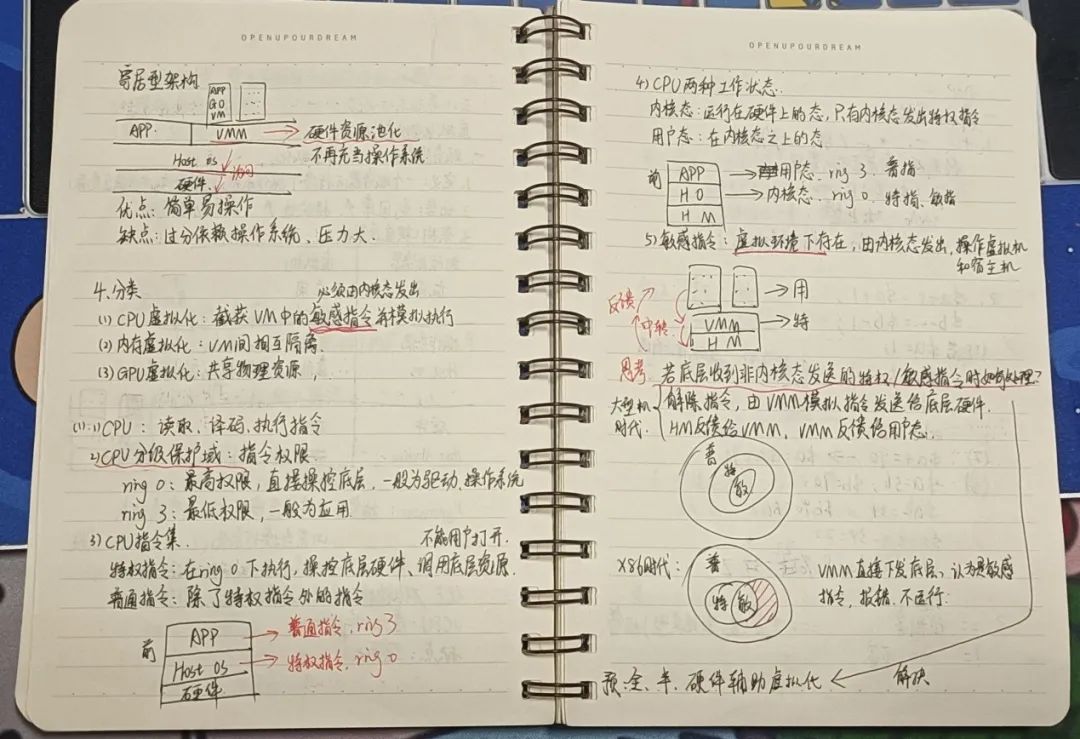 OPENUPOURDREAM
寄居型架构
APP
GO
VM
APP.
VMM
硬件资源池化
Host os
访问
不再充当操作系统
硬件.
优点: 简单易操作
缺点: 过分依赖操作系统、压力大.
4.分类
必须由内核态发出
(1) CPU虚拟化: 截获VM中的敏感指令并模拟执行
(2) 内存虚拟化: VM间相互隔离.
(3) GPU虚拟化: 共享物理资源,
(1) 1) CPU: 读取、译码、执行指令
2) CPU分级保护域: 指令权限.
ring 0: 最高权限, 直接操控底层, 一般为驱动、操作系统
ring 3: 最低权限, 一般为应用.
3) CPU指令集.
不能用户打开.
特权指令: 在ring 0下执行, 操控底层硬件、调用底层资源.
普通指令: 除了特权指令外的指令
前
APP
普通指令. ring 3
Host os
特权指令. ring 0
硬件
OPENUPOURDREAM
4) CPU两种工作状态.
内核态: 运行在硬件上的态, 只有内核态发出特权指令
用户态: 在内核态之上的态
前
APP
用户态. ring 3. 普指
HO
内核态. ring 0. 特指、敏指
HM
5) 敏感指令: 虚拟环境下存在, 由内核态发出, 操作虚拟机
和宿主机
用
反馈
中转
VMM
特
HM
思考 若底层收到非内核态发送的特权/敏感指令时如何处理?
大型机
时代.
解除指令, 由VMM模拟指令发送给底层硬件.
HM反馈给VMM, VMM反馈给用户态.
普
特
敏
X86时代:
普
特 敏
VMM直接下发底层, 认为是敏感
指令, 报错. 不运行.
预: 全、半、硬件辅助虚拟化
解决